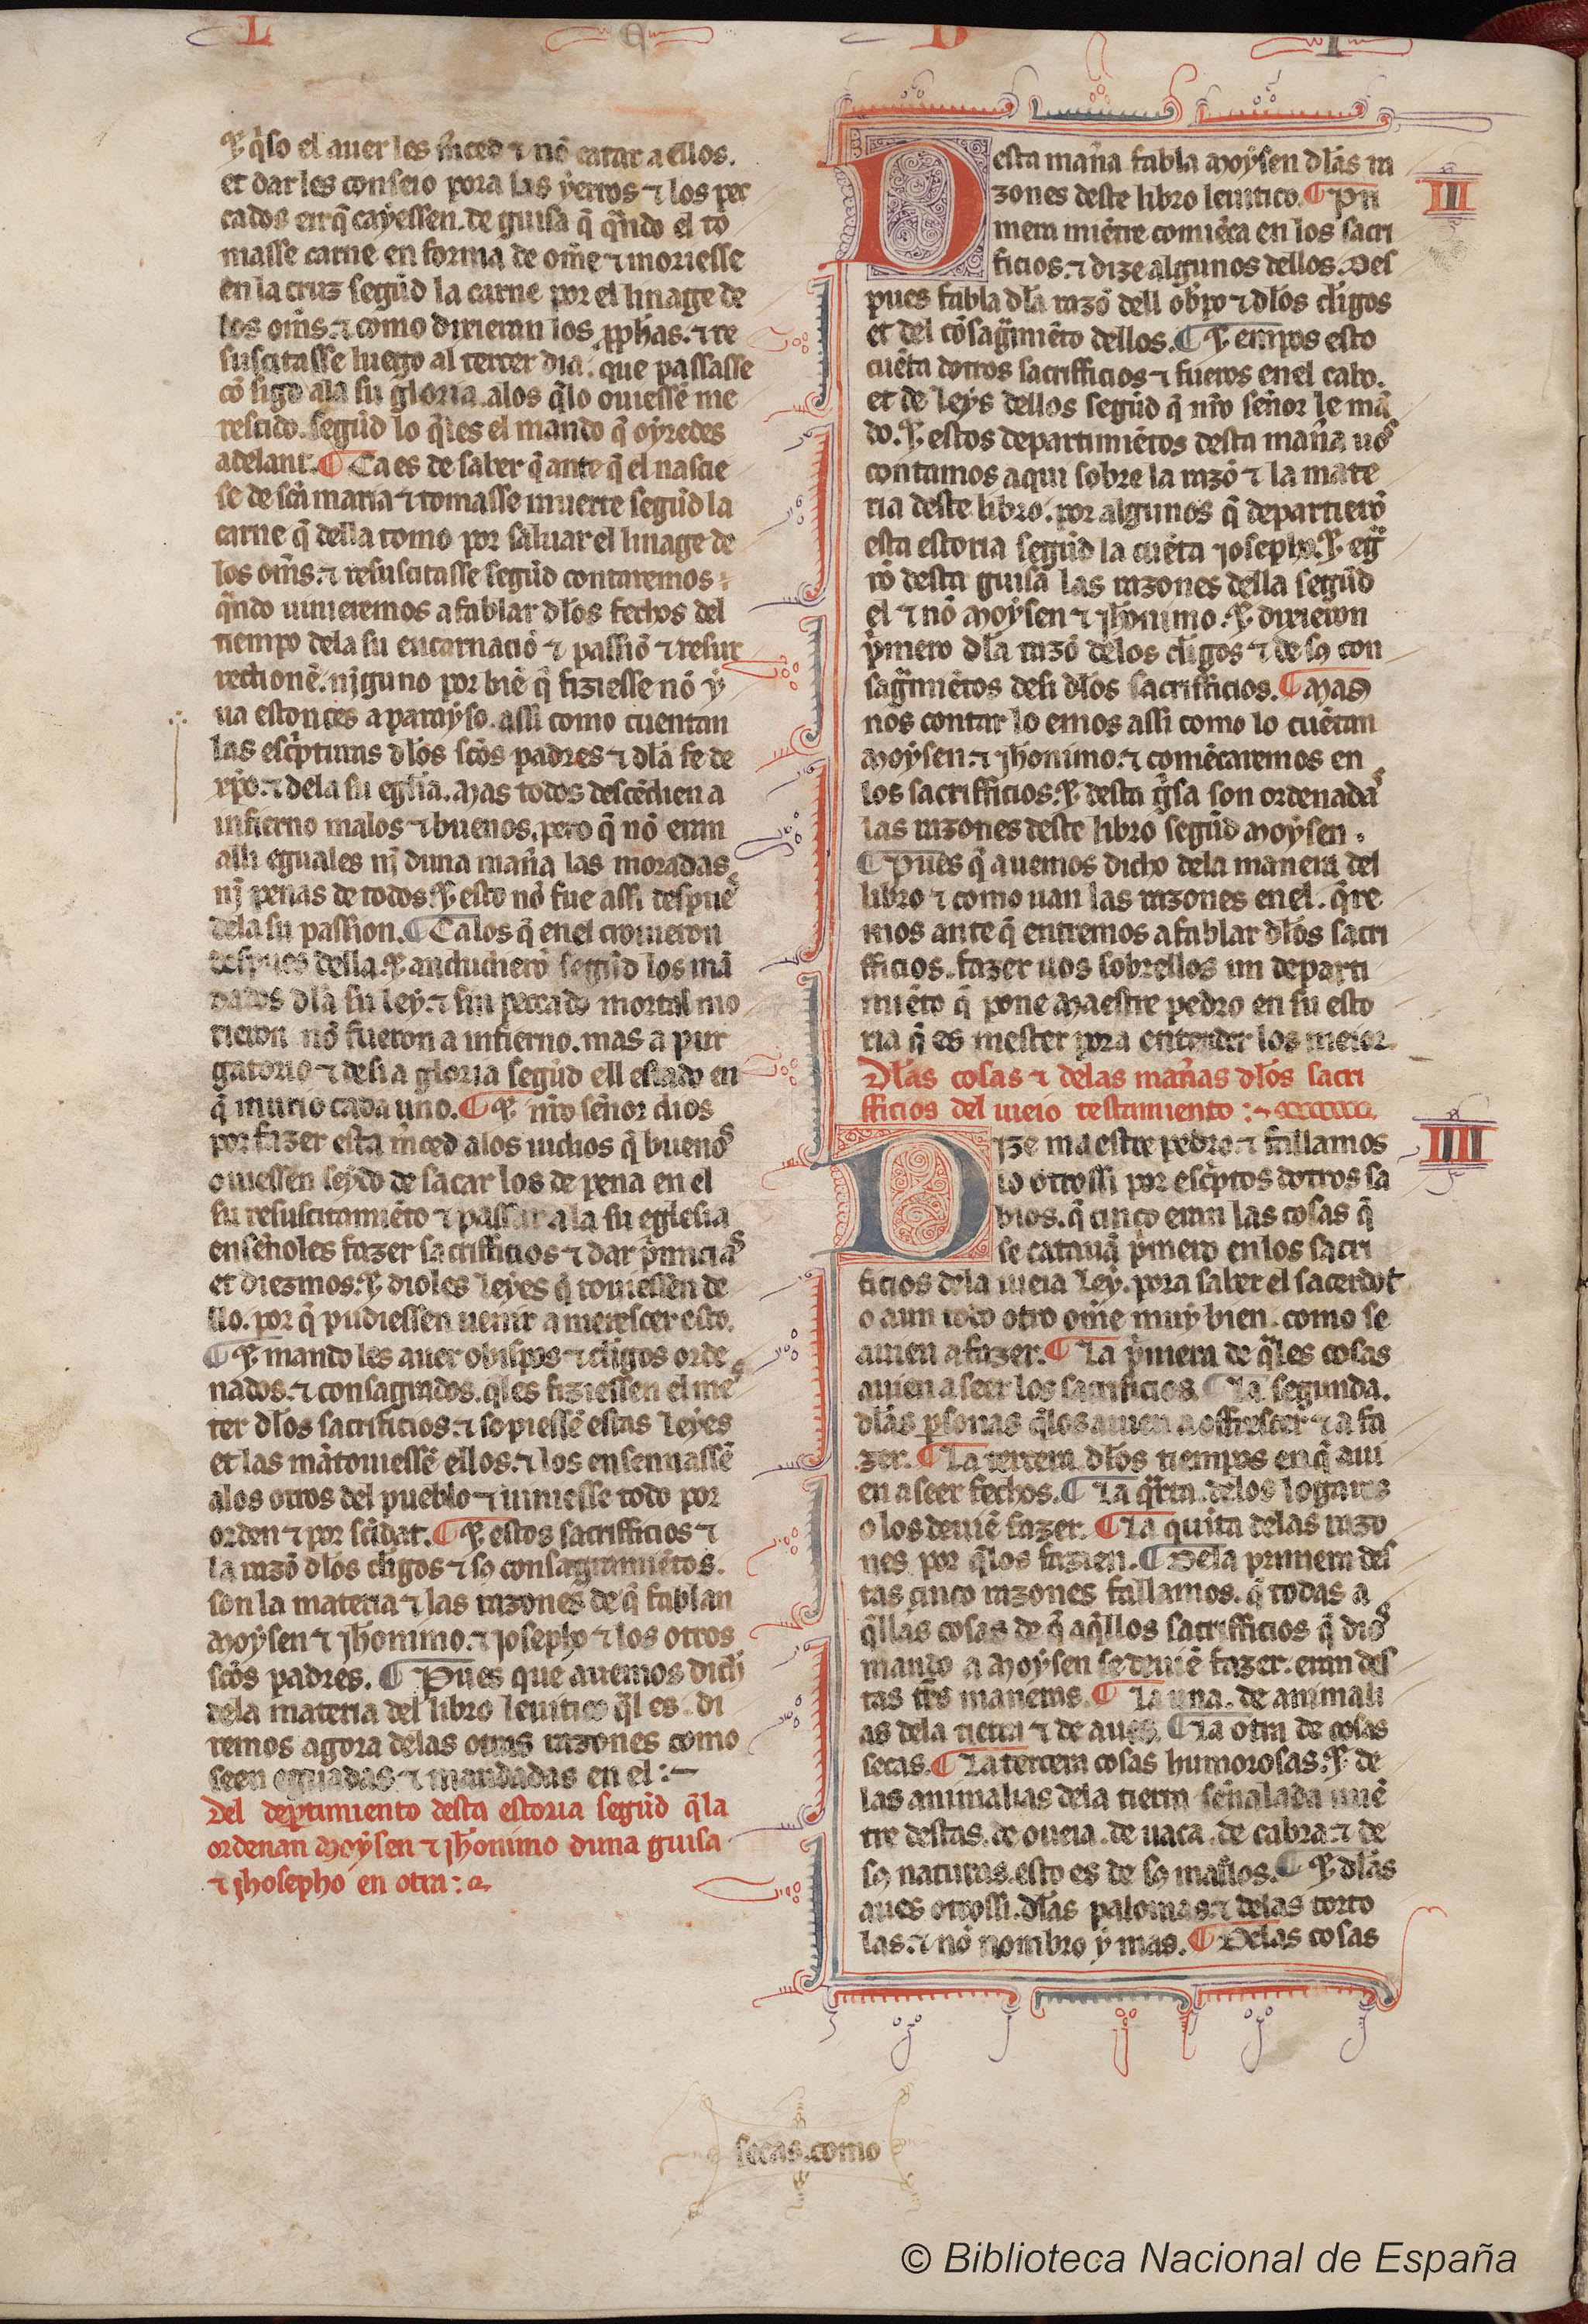 L E B I
⁊ q̃so el auer les m̃ced ⁊ nõ catar a ellos.
et dar les conseio pora las yerros ⁊ los pec
cados en q̃ cayessen. de guisa q̃ q̃ndo el to
masse carne en forma de om̃e ⁊ moriesse
en la cruz segũd la carne por el linage de
los om̃s. ⁊ como dixieran los pph̃as. ⁊ re
suscitasse luego al tercer dia. que passasse
cõ sigo ala su gloria. alos q̃lo ouiessẽ me
rescido. segũd lo q̃les el mando q̃ oyredes
adelant. ¶ Ca es de saber q̃ ante q̃ el nascie
se de sc̃a maria ⁊ tomasse muerte segũd la
carne q̃ della tomo por saluar el linage de
los om̃s. ⁊ resuscitasse segũd contaremos
q̃ndo uinieremos a fablar dl̃os fechos del
tiempo dela su encarnaciõ ⁊ passiõ ⁊ resur
rectionẽ. nỹguno por biẽ q̃ fiziesse nõ y
ua estonces a parayso. assi como cuentan
las esc̃pturas dl̃os sc̃os padres ⁊ dl̃a fe de
xp̃o. ⁊ dela su egl̃ia. Mas todos descẽdien a
infierno malos ⁊ buenos. pero q̃ nõ eran
alli eguales nj̃ duna mañra las moradas
nj̃ penas de todos. ⁊ esto nõ fue assi despues
dela su passion. ¶ Ca los q̃ en el crouieron
despues della. ⁊ andudierõ segũd los mã
dados dl̃a su ley. ⁊ sin peccado mortal mo
rieron nõ fueron a infierno. mas a pur
gatorio ⁊ desi a gloria segũd ell estado en
q̃ murio cada uno. ¶ ⁊ nr̃o señor dios
por fazer esta m̃ced alos iudios q̃ buenos
ouiessen seydo de sacar los de pena en el
su resuscitamiẽto ⁊ passar ala su eglesia
enseñoles fazer sacrifficios ⁊ dar p̃micias
et diezmos. ⁊ dioles leyes q̃ touiessen de
llo. por q̃ pudiessen uenir a merescer esto.
¶ ⁊ mando les auer obispos ⁊ cl̃igos orde
nados. ⁊ consagrados. q̃les fiziessen el mes
ter dl̃os sacrificios. ⁊ sopiessẽ estas leyes
et las mãtouiessẽ ellos. ⁊ los ensennassẽ
alos otros del pueblo ⁊ uiuiesse todo por
orden ⁊ por sc̃idat. ¶ ⁊ estos sacrifficios ⁊
la razõ dl̃os cl̃igos ⁊ sꝯ consagramiẽtos.
son la materia ⁊ las razones de q̃ fablan
Moysen ⁊ jh̃onimo. ⁊ josepho ⁊ los otros
sc̃os padres. ¶ Pues que auemos dicho
dela materia del libro leuitico q̃l es. di
remos agora delas otras razones como
seen eguadas ⁊ mandadas en el:
Del dep̃timiento desta estoria segũd q̃la
ordenan Moysen ⁊ jh̃onimo duna guisa
⁊ jhosepho en otra:
III
Desta mañra fabla Moysen dl̃as ra
zones deste libro leuitico. ¶ Pri
mera miẽtre comiẽça en los sacri
ficios. ⁊ dize algunos dellos. Des
pues fabla dl̃a razõ dell ob̃po ⁊ dl̃os cl̃igos
et del cõsag̃miẽto dellos. ¶ ⁊ empos esto
cuẽta dotros sacrifficios ⁊ fueros en el cabo.
et de leys dellos segũd q̃ nr̃o señor le mã
do. ⁊ estos departimiẽtos desta mañra uos
contamos aqui sobre la razõ ⁊ la mate
ria deste libro. por algunos q̃ departierõ
esta estoria segũd la cuẽta josepho. ⁊ egua
rõ desta guisa las razones della segũd
el ⁊ nõ Moysen ⁊ jh̃onimo. ⁊ dixieron
p̃mero dl̃a razõ delos cl̃igos ⁊ de sꝯ con
sag̃miẽtos desi dl̃os sacrifficios. ¶ Mas
nos contar lo emos assi como lo cuẽtan
Moysen. ⁊ jh̃onimo. ⁊ comẽcaremos en
los sacrifficios. ⁊ desta g̃sa son ordenadas
las razones deste libro segũd Moysen.
¶ Pues q̃ auemos dicho dela manera del
libro ⁊ como uan las razones en el. q̃re
mos ante q̃ entremos a fablar dl̃os sacri
fficios. fazer uos sobrellos un departi
miẽto q̃ pone Maestre pedro en su esto
ria q̃ es mester pora entender los meior.
Dl̃as cosas ⁊ delas mañras dl̃os sacri
fficios del uieio testamiento:
IIII
Dize maestre pedro. ⁊ fallamos
lo otrossi por esc̃ptos dotros sa
bios. q̃ cinco eran las cosas q̃
se catauã p̃mero en los sacri
ficios dela uieia ley. pora saber el sacerdot
o aun todo otro om̃e muy bien. como se
auien a fazer. ¶ La p̃mera de q̃les cosas
auien a seer los sacrificios. ¶ La segunda.
dl̃as p̃sonas q̃los auien a offrescer ⁊ a fa
zer. ¶ La tercera dl̃os tiempos en q̃ aui
en a seer fechos. ¶ La q̃rta. delos logares
o los deuiẽ fazer. ¶ La quĩta delas razo
nes por q̃los fazien. ¶ Dela primera des
tas cinco razones fallamos. q̃ todas a
q̃llas cosas de q̃ aq̃llos sacrifficios q̃ dios
mando a Moysen se deuiẽ fazer. eran des
tas tr̃s maneras. ¶ La una. de animali
as dela tierra ⁊ de aues. ¶ La otra de cosas
secas. ¶ La tercera cosas humorosas. ⁊ de
las animalias dela tierra señalada miẽ
tre destas. de oueia. de uaca. de cabra. ⁊ de
sꝯ naturas. esto es de sꝯ mañlos. ¶ ⁊ dl̃as
aues otrossi. dl̃as palomas. ⁊ delas torto
las. ⁊ nõ nombro y mas. ¶ Delas cosas
secas. como
© Biblioteca Nacional de España